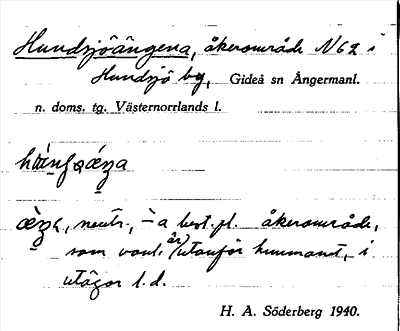 Hundsjöängena, åkerområde N62 i
Hundsjö by, Gideå sn Ångermanl.
n. doms. tg. Västernorrlands l.
neutr., -a best. pl. åkerområde,
som vanl. är utanför hummanet, i
utägor l.d.
H. A. Söderberg 1940.